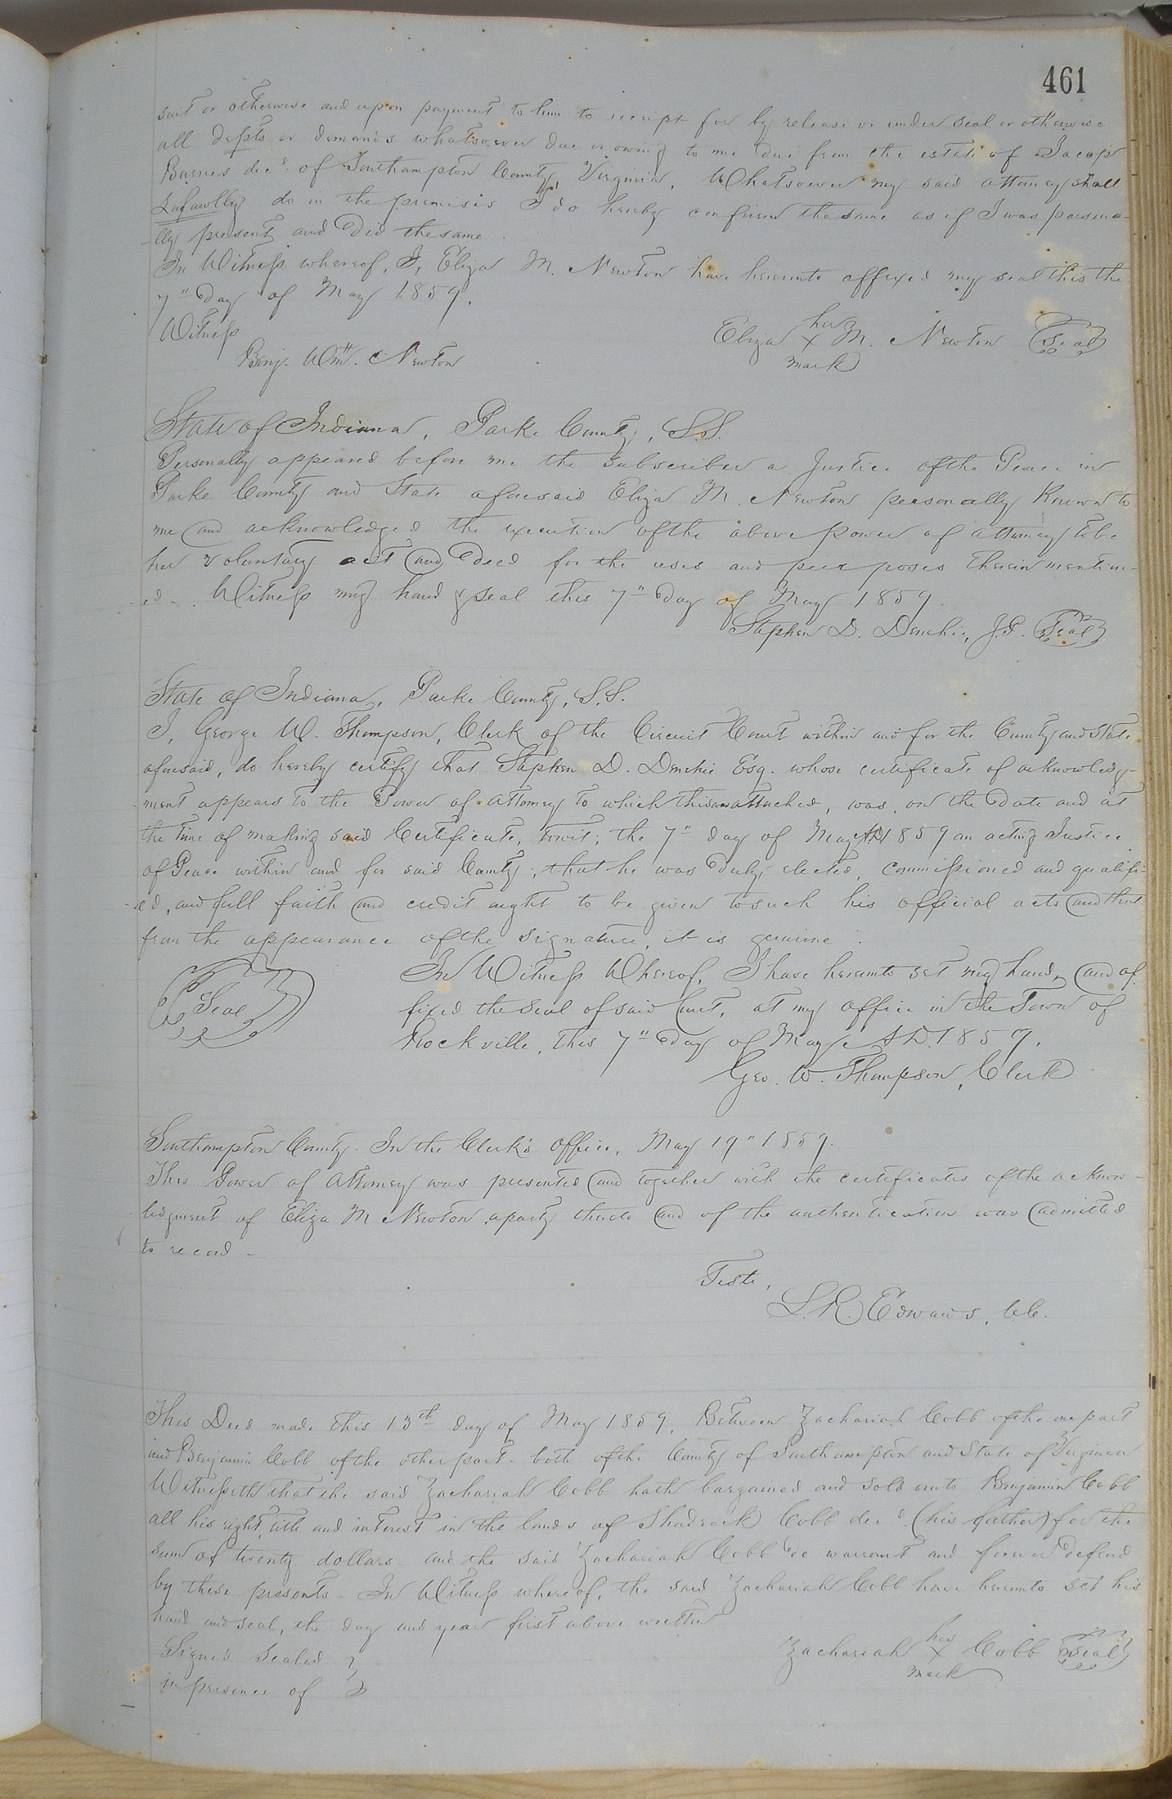 461
suit or otherwise and upon payment to him to receipt for by release or under seal or otherwise
all debts or demands whatsoever due or owing to me due from the estate of Jacob
Barnes decd of Southampton County, Virginia, Whatsoever my said attorney shall
Lafawlly do in the premises I do hereby confirm the same as if I was persona-
lly present and did the same.
In Witness whereof, I, Eliza M. Newton have hereunto affixed my seal this the
7" Day of May 1859.
Witness
Eliza her X mark M. Newton Seal
Benj. Wm. Newton
State of Indiana, Parke County, S.S.
Personally appeared before me the subscriber a Justice of the Peace in
Parke County and State aforesaid Eliza M. Newton personally known to
me and acknowledged the execution of the above power of attorney to be
her voluntary act and deed for the uses and purposes therein mention-
ed. Witness my hand & seal this 7" day of May 1859.
Stephen D. J.P. Seal
State of Indiana, Parke County, S.S.
I, George W. Thompson, Clerk of the Circuit Court within and for the County and State
aforesaid, do hereby certify that Stephen D. Esq. whose certificate of acknowledg-
ment appears to the Power of attorney to which this is attached, was, on the date and at
the time of making said Certificate, towit; the 7" day of May AD 1859 an acting Justice
of Peace within and for said County; that he was duly elected, commissioned and qualifi-
-ed, and full faith and credit aught to be given to such his official acts and that
from the appearance of the signature, it is genuine.
In Witness Whereof, I have hereunto set my hand, and af-
Seal
fixed the seal of said Court, at my office in the Town of
Rockville, this 7" day of May A.D. 1859.
Geo. W. Thompson, Clerk
Southampton County. In the Clerk's office, May 19" 1859.
This Power of Attorney was presented and together with the certificates of the acknow-
ledgment of Eliza M Newton a party thereto and of the authentication was admitted
to record.
Teste,
L. R. Edwards, C.C.
This Deed made this 13th day of May 1859, Between Zachariah Cobb of the one part
and Benjamin Cobb of the other part. both of the County of Southampton and State of Virginia
Witnesseth that the said Zachariah Cobb hath bargained and sold unto Benjamin Cobb
all his right, title and interest in the lands of Shadrack Cobb decd (his father) for the
sum of twenty dollars. and the said Zachariah Cobb do warrant and forever defend
by these presents. In Witness whereof, the said Zachariah Cobb have hereunto set his
hand and seal, the day and year first above written
Signed Sealed }
Zachariah his X mark Cobb Seal
in presence of }